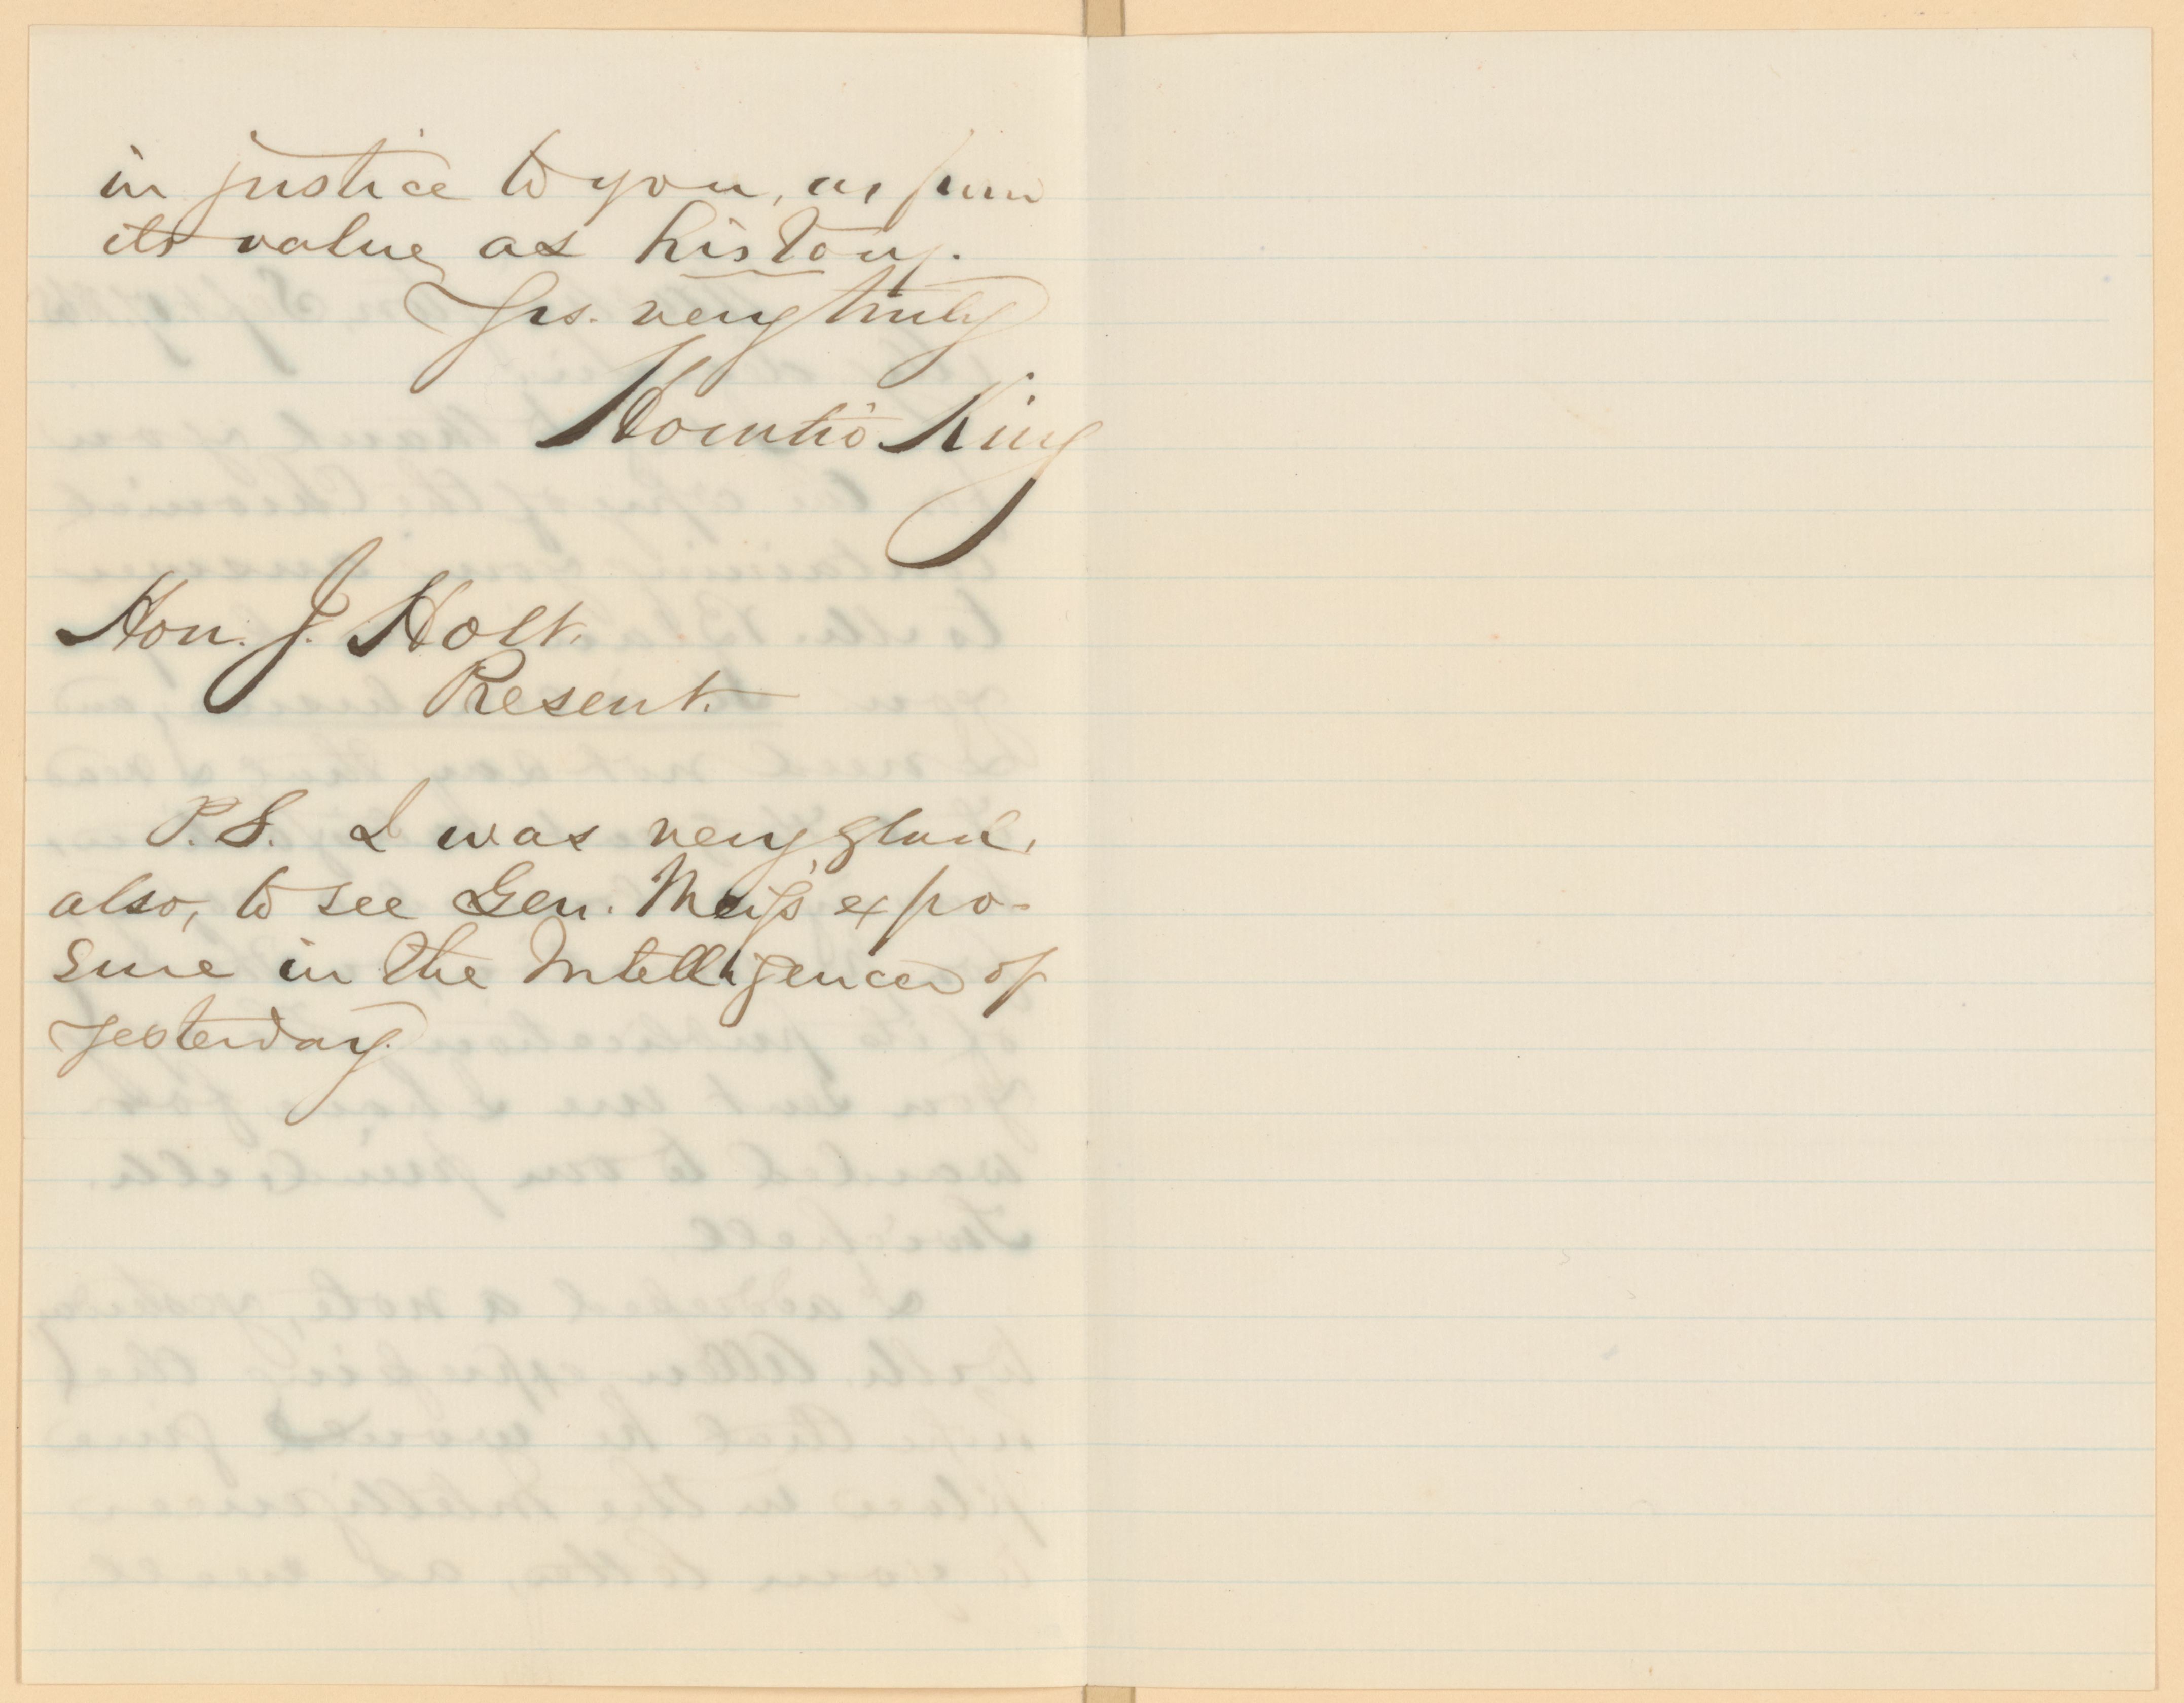 in justice to you, as from
its value as history.
Yrs. very truly
Horatio King
Hon. J. Holt.
Present.
P.S. I was very glad,
also, to see Gen. Meigs' expo-
sure in the Intelligencer of
yesterday.